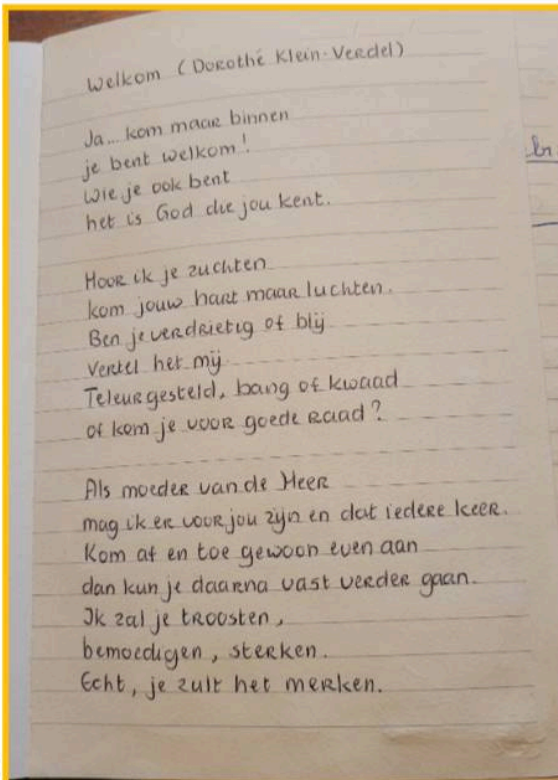 Welkom (Dorothé Klein-Verdel)
Ja... kom maar binnen
je bent welkom!
Wie je ook bent
het is God die jou kent.
Hoor ik je zuchten
kom jouw hart maar luchten.
Ben je verdrietig of blij
vertel het mij.
Teleurgesteld, bang of kwaad
of kom je voor goede raad?
Als moeder van de Heer
mag ik er voor jou zijn en dat iedere keer.
Kom af en toe gewoon even aan
dan kun je daarna vast verder gaan.
Ik zal je troosten,
bemoedigen, sterken.
Echt, je zult het merken.